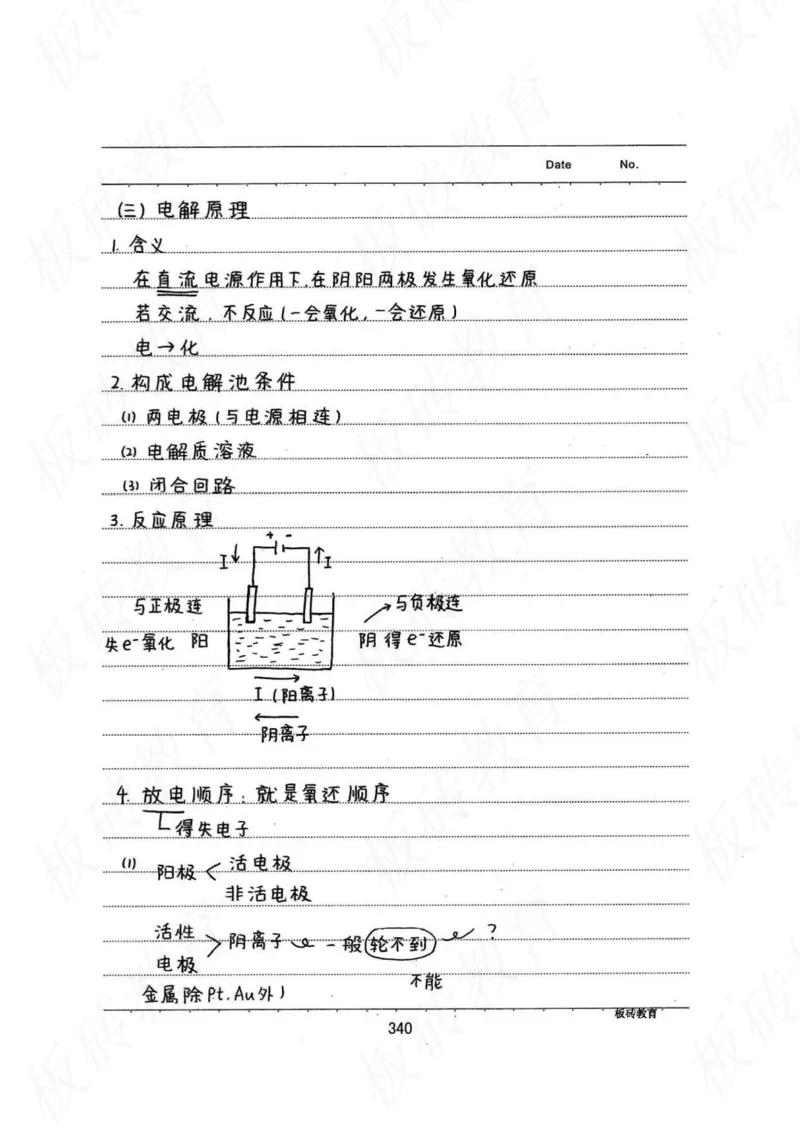 Date No.
(三) 电解原理
1. 含义
在直流电源作用下,在阴阳两极发生氧化还原
若交流,不反应(一会氧化,一会还原)
电→化
2. 构成电解池条件
(1) 两电极(与电源相连)
(2) 电解质溶液
(3) 闭合回路
3. 反应原理
+ -
I↓ ↑I
与正极连 与负极连
失e⁻氧化 阳 阴 得e⁻还原
I (阳离子)
阴离子
4. 放电顺序:就是氧还顺序
得失电子
(1) 阳极 < 活电极
非活电极
活性 > 阴离子 一般轮不到 ?
电极
不能
金属除Pt.Au外)
板砖教育
340